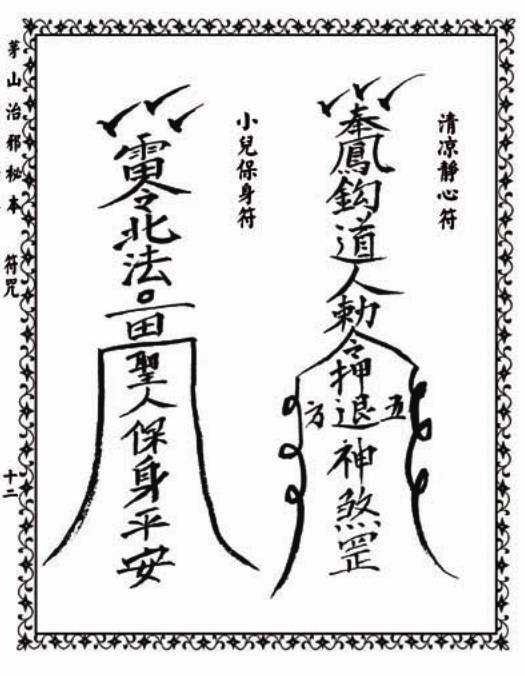 清凉靜心符
奉鳳鈎道人勅令押退神煞罡
五方
小兒保身符
雷令北法
田聖人保身平安
茅山治邪秘本 符咒 十二